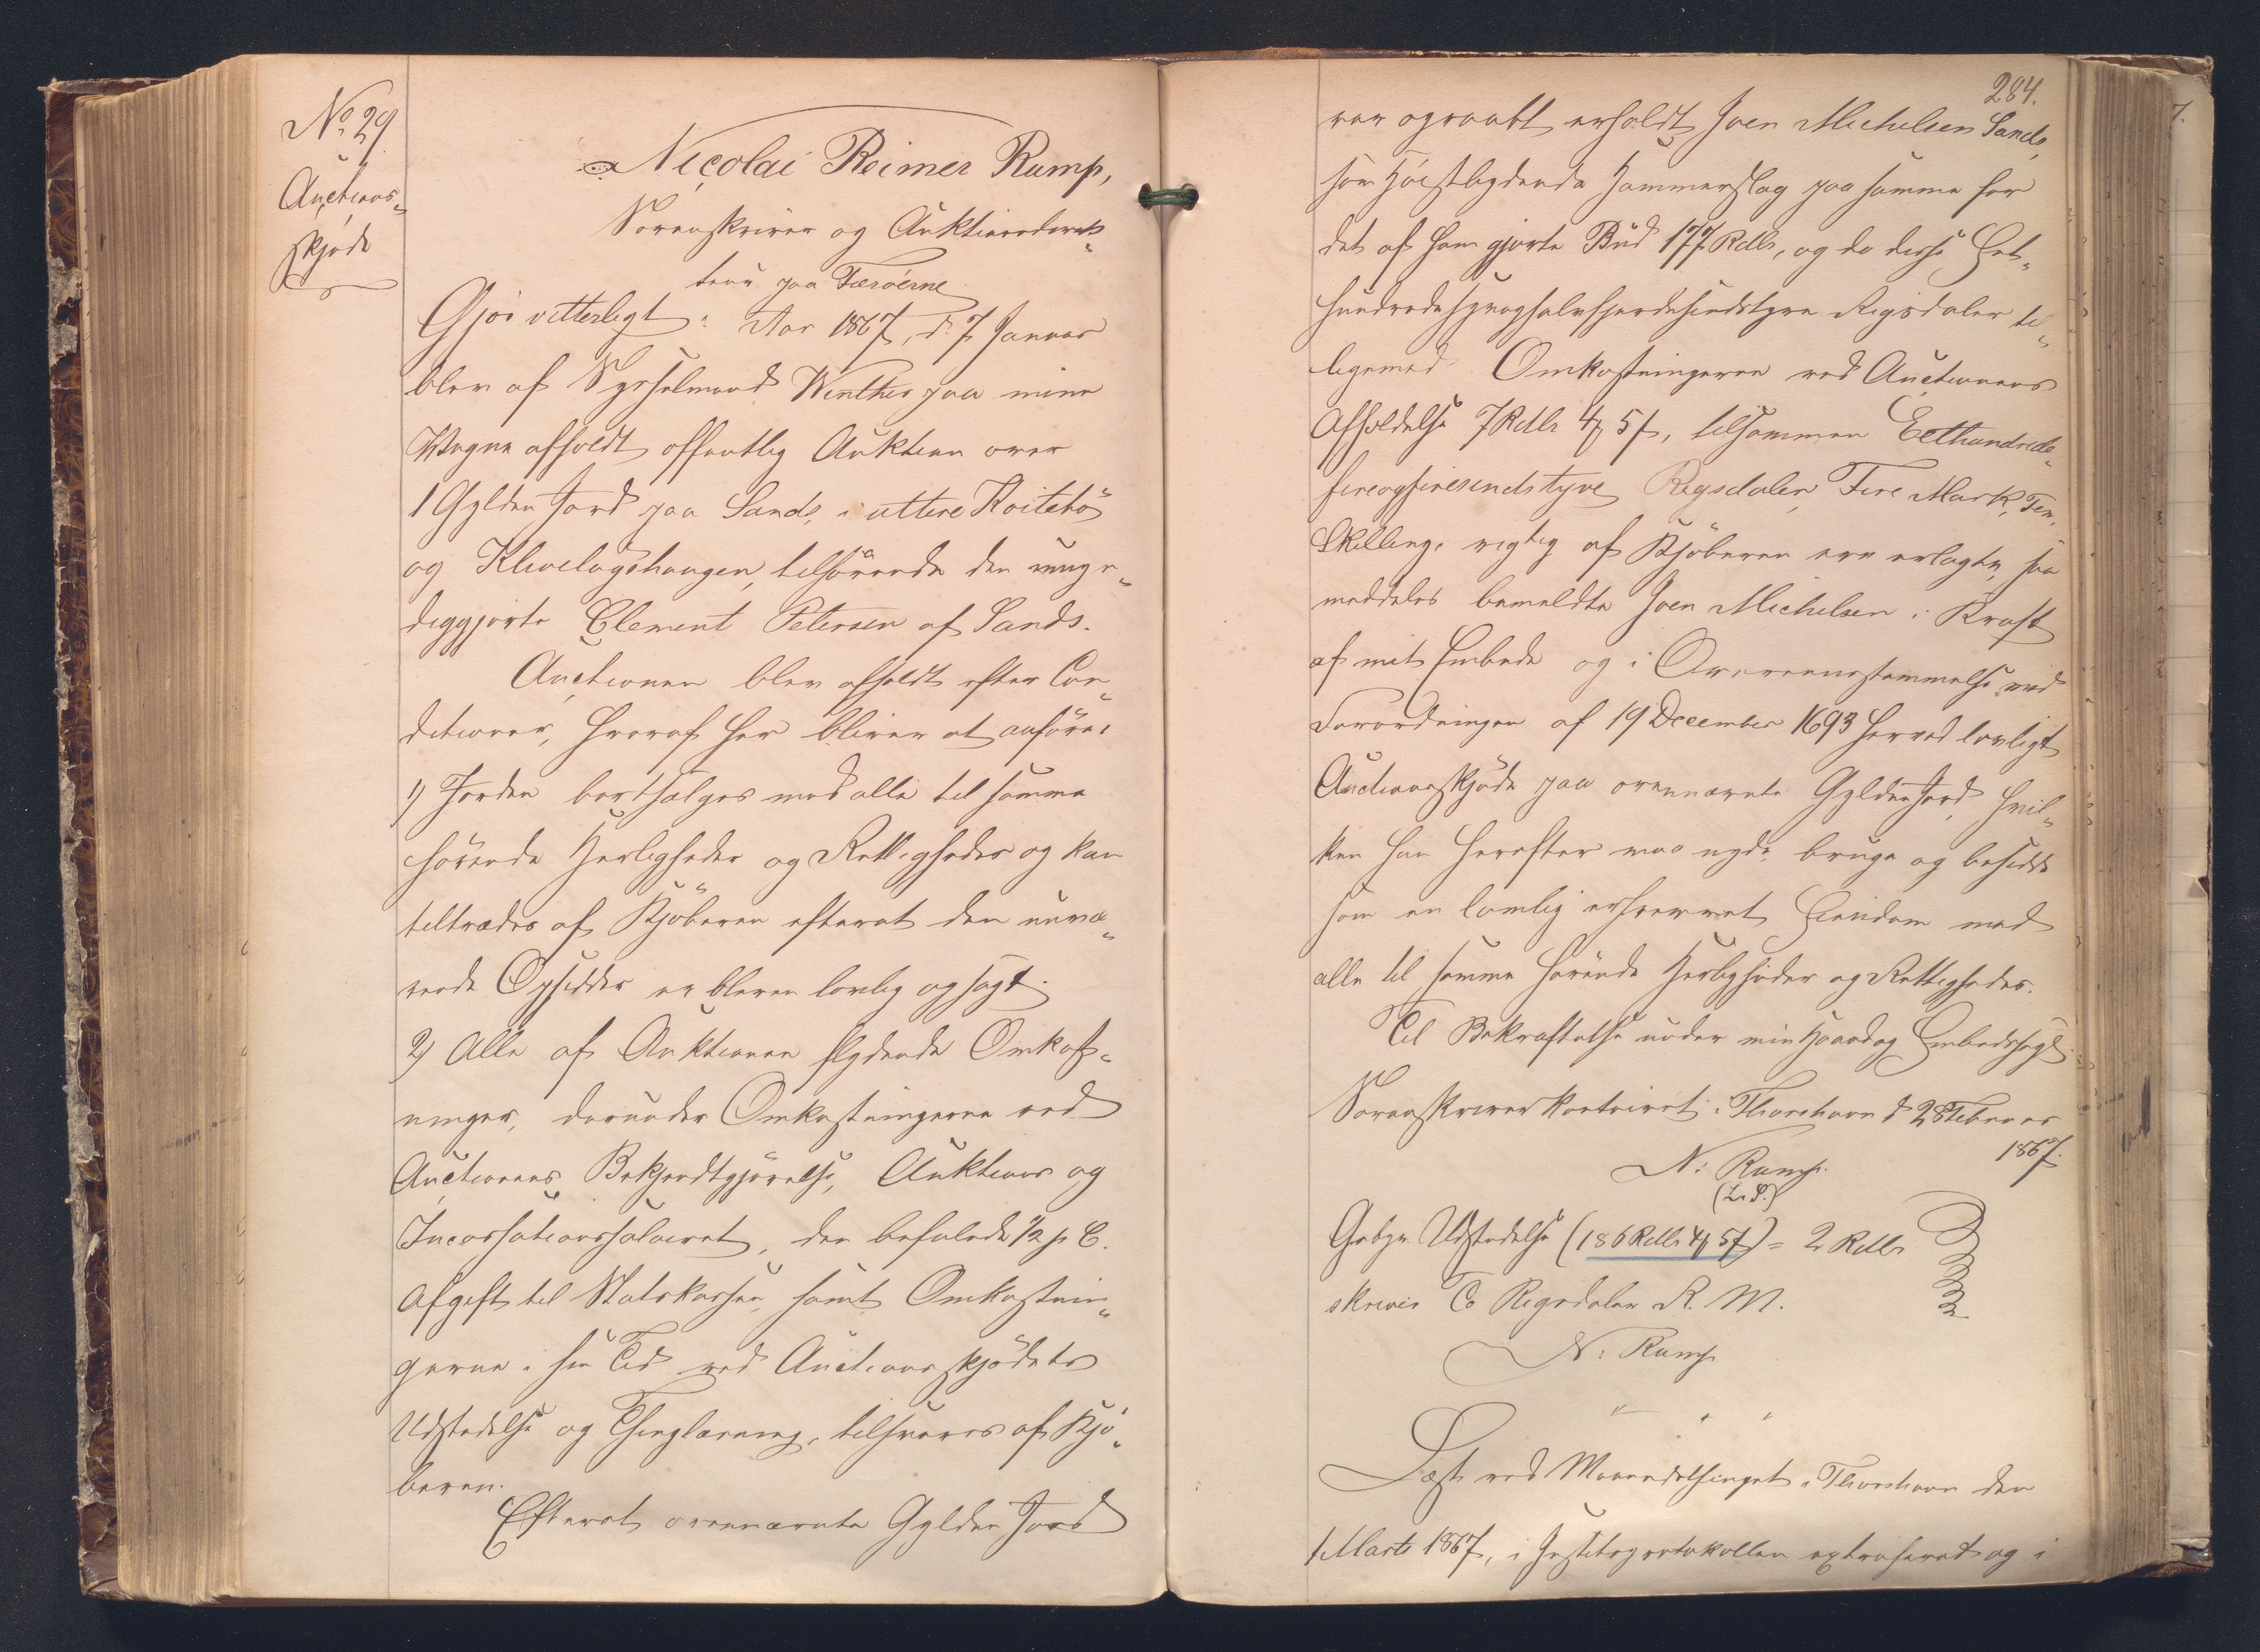 No. 29
Auctions-
skjøde
Nicolai Reimer Rump,
Sorenskriver og Auktionsdirek-
teur paa Færöerne
Gjör vitterligt: Aar 1867, d. 7 Januar
blev af Sysselmand Winther paa mine
Vegne afholdt offentlig Auktion over
1 Gylden Jord paa Sands, i uttere Koitebö
og Klivelögshaugen, tilhörende den umyn-
diggjorte Clement Petersen af Sands.
Auctionen blev afholdt efter Con-
ditioner, hvoraf her bliver at anföre:
1) Jorden bortsælges med alle til samme
hörende Herligheder og Rettigheder og kan
tiltrædes af Kjöberen efterat den nuvæ-
rende Opsidder er bleven lovlig opsagt.
2) Alle af Auktionen flydende Omkost-
ninger, derunder Omkostningerne ved
Auctionens Bekjendtgjörelse, Auktions og
Incassationssalairet, den befalede 1/2 p C.
Afgift til Statskassen, samt Omkostnin-
gerne i sin Tid ved Auctionsskjödets
Udstedelse og Thinglæsning, tilsvares af Kjö-
beren.
Efterat ovennævnte Gylden Jord
284.
var opraabt erholdt Joen Michelsen Sands,
som Höistbydende Hammerslag paa samme for
det af ham gjorte Bud 177 Rdlr, og da disse Et-
hundredesyvoghalvfjerdesindstyve Rigsdaler til-
ligemed Omkostningerne ved Auctionens
Afholdelse 7 Rdlr 4 # 5 ß, tilsammen Eethundrede-
fireogfiresindstyve Rigsdaler, Fire Mark, Fem
Skilling, rigtig af Kjöberen ere erlagte, saa
meddeles bemeldte Joen Michelsen i Kraft
af mit Embede og i Overeensstemmelse med
Forordningen af 19 December 1693 herved lovligt
Auctionsskjöde paa ovennævnte Gylden Jord, hvil-
ken han herefter maa nyde, bruge og besidde
som en lovlig erhvervet Eiendom med
alle til samme hörende Herligheder og Rettigheder.
Til Bekræftelse under min Haand og Embedssegl.
Sorenskriverkontoiret i Thorshavn d 28 Februar
1867.
N: Rump.
(L. S.)
Gebyr Udstedelse (186 Rdlr 4 # 5 ß) = 2 Rdlr
skriver To Rigsdaler R. M.
N: Rump
" " "
Læst ved Maanedsthinget i Thorshavn den
1 Marts 1867, i Justitsprotokollen extraheret og i